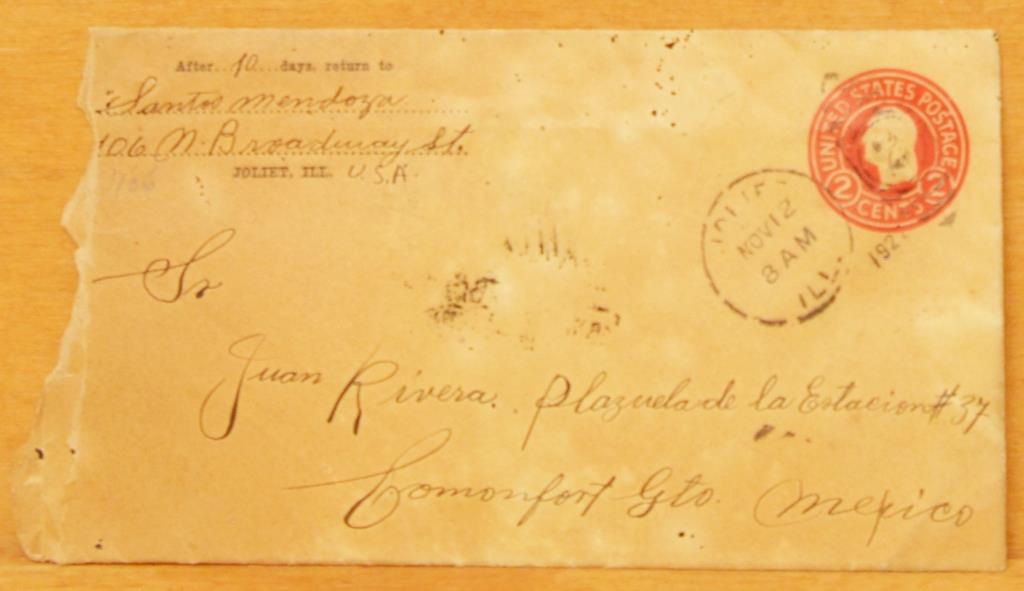 After 10 days, return to
Santos Mendoza
106 N. Broadway St.
JOLIET, ILL. U.S.A.
UNITED STATES POSTAGE
2 CENTS 2
JOLIET
NOV 12
8 AM
ILL.
192
Sr
Juan Rivera. Plazuela de la Estacion #37
Comonfort Gto. Mexico